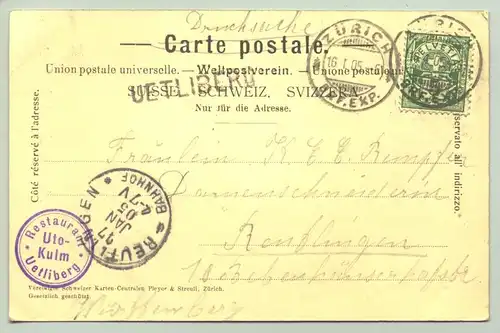 Drucksache
Carte postale.
Union postale universelle. — Weltpostverein. — Unione postale
UETLIBERG
SUISSE. SCHWEIZ. SVIZZERA.
Nur für die Adresse.
Côté réservé à l'adresse.
riservato all'indirizzo.
ZÜRICH
16 I 05
FF. EXP.
HELVETIA
Fräulein K E C Kempfer
Damenschneiderin
Reutlingen
Württemberg
REUTLINGEN BAHNHOF
17 JAN 05
Restaurant
Uto-
Kulm
Uetliberg
Vereinigte Schweizer Karten-Centralen Pleyer & Streuli, Zürich.
Gesetzlich geschützt.